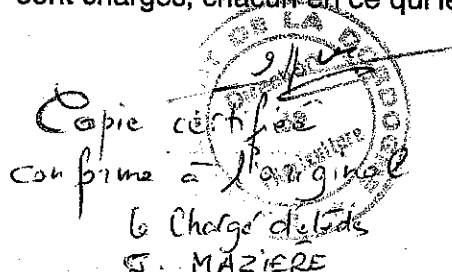 sont chargés, chacun en ce qui le
DE LA DORDOGNE
Copie certifiée
conforme à l'original
le Chargé d'études
MAZIERE